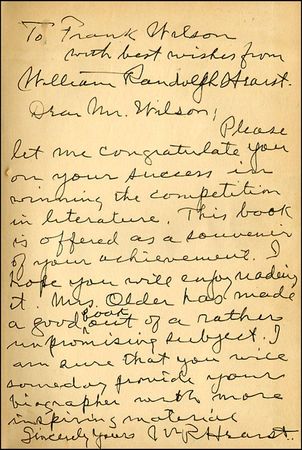 To Frank Wilson
with best wishes from
William Randolph Hearst.
Dear Mr. Wilson,
Please
let me congratulate you
on your success in
winning the competition
in literature. This book
is offered as a souvenir
of your achievement. I
hope you will enjoy reading
it. Mrs. Older has made
a good book out of a rather
unpromising subject. I
am sure that you will
someday provide your
biographer with more
inspiring material
Sincerely yours W R Hearst.